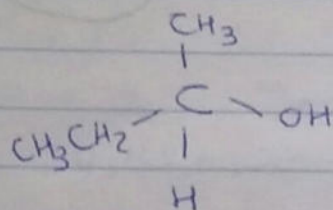 CH₃
C
CH₃CH₂ OH
H